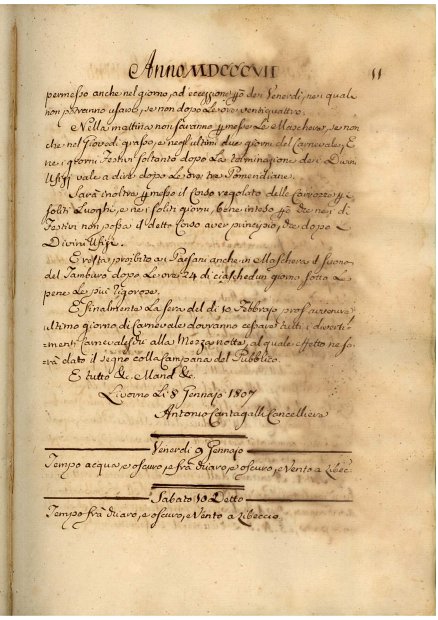 Anno MDCCCVII
11
permesso anche nel giorno, ad eccezzione però dei Venerdì, nei quale
non potranno usarsi, se non dopo Le ore ventiquattro.
Nella mattina non saranno permesse Le Maschere, se non
che nel Giovedì grasso, e negl'ultimi due giorni del Carnevale, E
nei giorni Festivi soltanto dopo La terminazione dei Divini
Uffizj vale a dire dopo Le ore tre Pomeridiane.
Sarà inoltre permesso il Corso regolato delle Carrozze per i
soliti Luoghi, e nei soliti giorni, bene inteso però che nei dì
Festivi non possa il detto Corso aver principio, che dopo i
Divini Uffizj.
E resta proibito ai Paesani anche in Maschera il suono
del Tamburo dopo Le ore 24 di ciaschedun giorno sotto Le
pene Le più rigorose.
E finalmente La sera del dì 10 Febbrajo
ultimo giorno di Carnevale dovranno cessare tutti i diverti=
menti Carnevaleschi alla Mezza notte, al quale effetto ne sa=
rà dato il segno colla Campana del Pubblico.
E tutto &c. Mand &c.
Livorno Li 8 Gennajo 1807
Antonio Cantagalli Cancelliere
Venerdì 9 Gennajo
Tempo acqua, e oscuro, e frà chiaro, e oscuro, e Vento a Libec.
Sabato 10 Detto
Tempo frà chiaro, e oscuro, e Vento a Libeccio